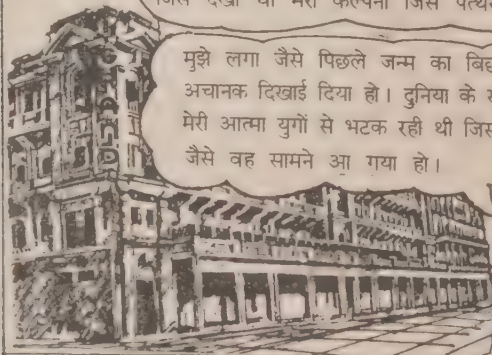 देखा था मेरी कल्पना जिसे
मुझे लगा जैसे पिछले जन्म का
अचानक दिखाई दिया हो। दुनिया के
मेरी आत्मा युगों से भटक रही थी
जैसे वह सामने आ गया हो।